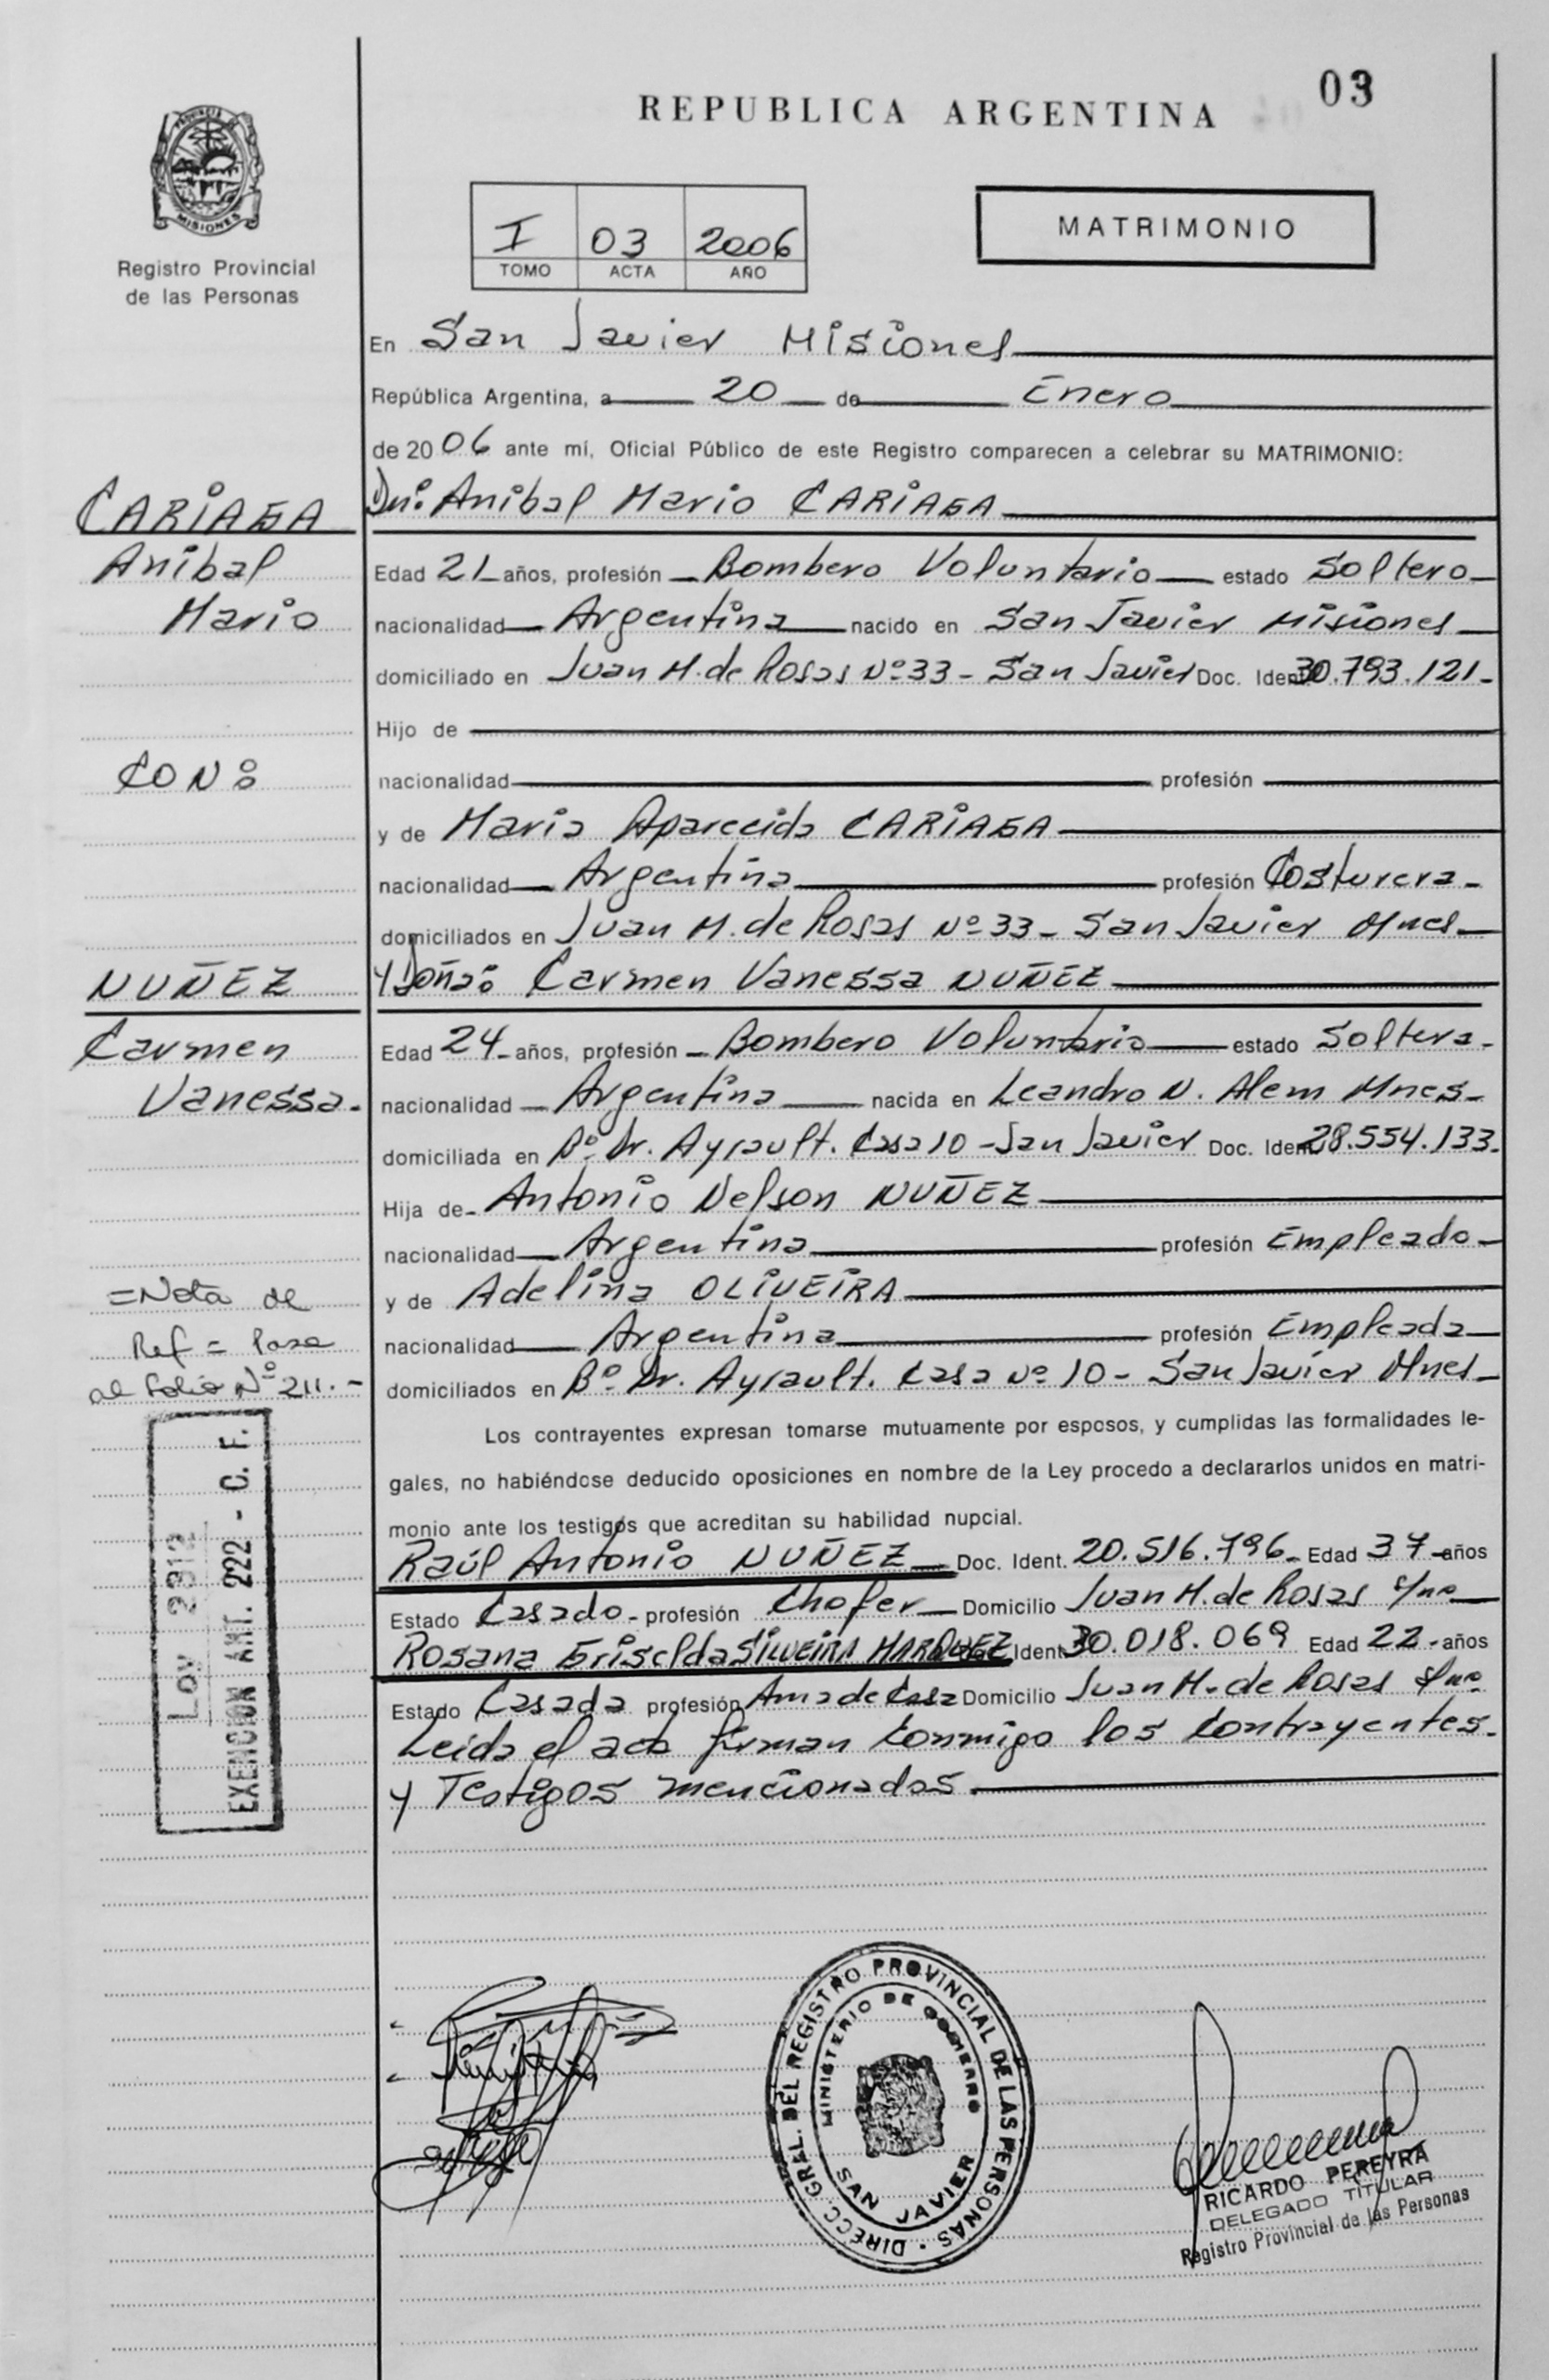 03
REPUBLICA ARGENTINA
MISIONES
Registro Provincial
de las Personas
I 03 2006
TOMO ACTA AÑO
MATRIMONIO
En San Javier Misiones
República Argentina, a 20 de Enero
de 2006 ante mí, Oficial Público de este Registro comparecen a celebrar su MATRIMONIO:
CARIAGA
Anibal
Mario
CON:
NUÑEZ
Carmen
Vanessa.
=Nota de
Ref = Pasa
al Folio Nº 211.-
Ley 2312
EXENCION ART. 222 - C. F.
Dn: Anibal Mario CARIAGA
Edad 21 años, profesión Bombero Voluntario estado Soltero
nacionalidad Argentina nacido en San Javier Misiones
domiciliado en Juan M. de Rosas Nº 33 - San Javier Doc. Ident. 30.793.121-
Hijo de
nacionalidad profesión
y de Maria Aparecida CARIAGA
nacionalidad Argentina profesión Costurera-
domiciliados en Juan M. de Rosas Nº 33 - San Javier Mnes
y Doña: Carmen Vanessa NUÑEZ
Edad 24 años, profesión Bombero Voluntario estado Soltera-
nacionalidad Argentina nacida en Leandro N. Alem Mnes-
domiciliada en Bº Dr. Ayrault. Casa 10 - San Javier Doc. Ident. 28.554.133-
Hija de Antonio Nelson NUÑEZ
nacionalidad Argentina profesión Empleado
y de Adelina OLIVEIRA
nacionalidad Argentina profesión Empleada
domiciliados en Bº Dr. Ayrault. Casa Nº 10 - San Javier Mnes
Los contrayentes expresan tomarse mutuamente por esposos, y cumplidas las formalidades le-
gales, no habiéndose deducido oposiciones en nombre de la Ley procedo a declararlos unidos en matri-
monio ante los testigos que acreditan su habilidad nupcial.
Raúl Antonio NUÑEZ Doc. Ident. 20.516.796- Edad 37 años
Estado Casado - profesión Chofer Domicilio Juan M. de Rosas s/nº
Rosana Griselda SILVEIRA MARQUEZ Ident. 30.018.069 Edad 22 años
Estado Casada profesión Ama de Casa Domicilio Juan M. de Rosas s/nº
Leida el acta firman conmigo los contrayentes
y Testigos mencionados.
DIRECC. GRAL. DEL REGISTRO PROVINCIAL DE LAS PERSONAS
MINISTERIO DE GOBIERNO
SAN JAVIER
RICARDO PEREYRA
DELEGADO TITULAR
Registro Provincial de las Personas